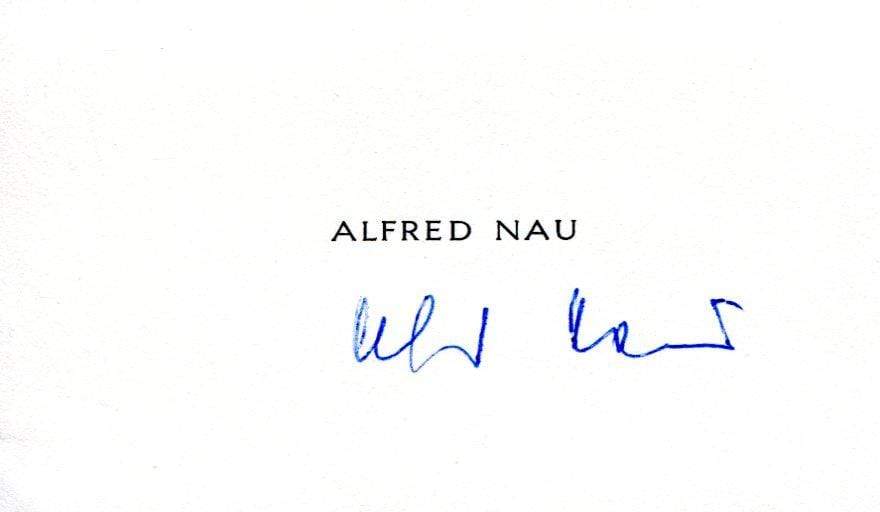 ALFRED NAU
Alfred Nau